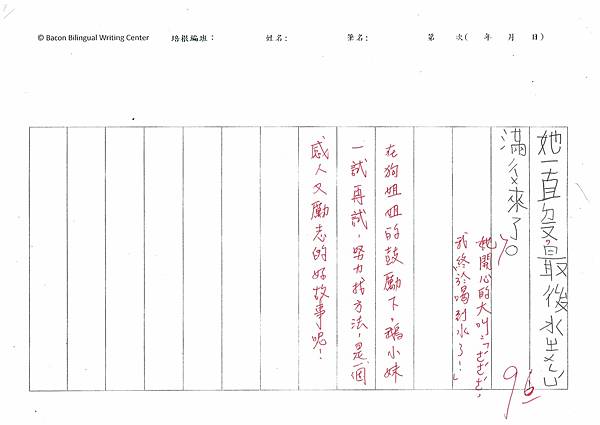 © Bacon Bilingual Writing Center 培根編班： 姓名： 筆名： 第 次（ 年 月 日）
她一直 最後水
滿 來了。
她開心的大叫：「ㄎㄎㄎ，
我終於喝到水了！」
在狗姐姐的鼓勵下，鴉小妹
一試再試，努力找方法，是一個
感人又勵志的好故事呢！
96